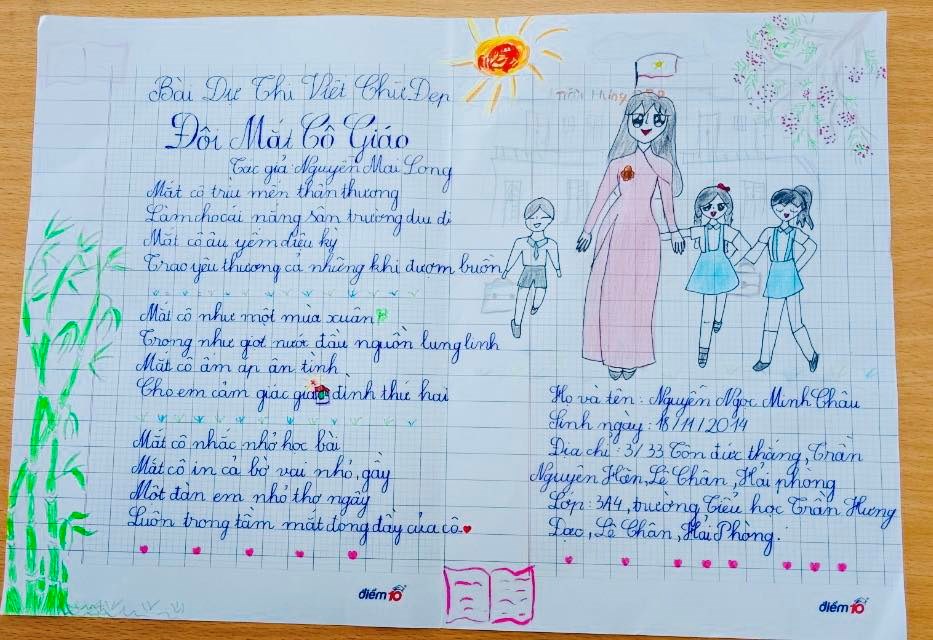 Bài Dự Thi Viết Chữ Đẹp
Đôi Mắt Cô Giáo
Tác giả Nguyễn Mai Long
Mắt cô trìu mến thân thương
Làm cho cái nắng sân trường dịu đi
Mắt cô âu yếm diệu kỳ
Trao yêu thương cả những khi đượm buồn
Mắt cô như một mùa xuân
Trong như giọt nước đầu nguồn lung linh
Mắt cô ấm áp ân tình
Cho em cảm giác gia đình thứ hai
Mắt cô nhắc nhở học bài
Mắt cô in cả bờ vai nhỏ, gầy
Một đàn em nhỏ thơ ngây
Luôn trong tầm mắt đong đầy của cô.
điểm 10
Họ và tên: Nguyễn Ngọc Minh Châu
Sinh ngày: 18/11/2014
Địa chỉ: 3/33 Tôn đức thắng, Trần
Nguyên Hãn, Lê Chân, Hải phòng
Lớp: 3A4, trường Tiểu học Trần Hưng
Đạo, Lê Chân, Hải Phòng.
điểm 10